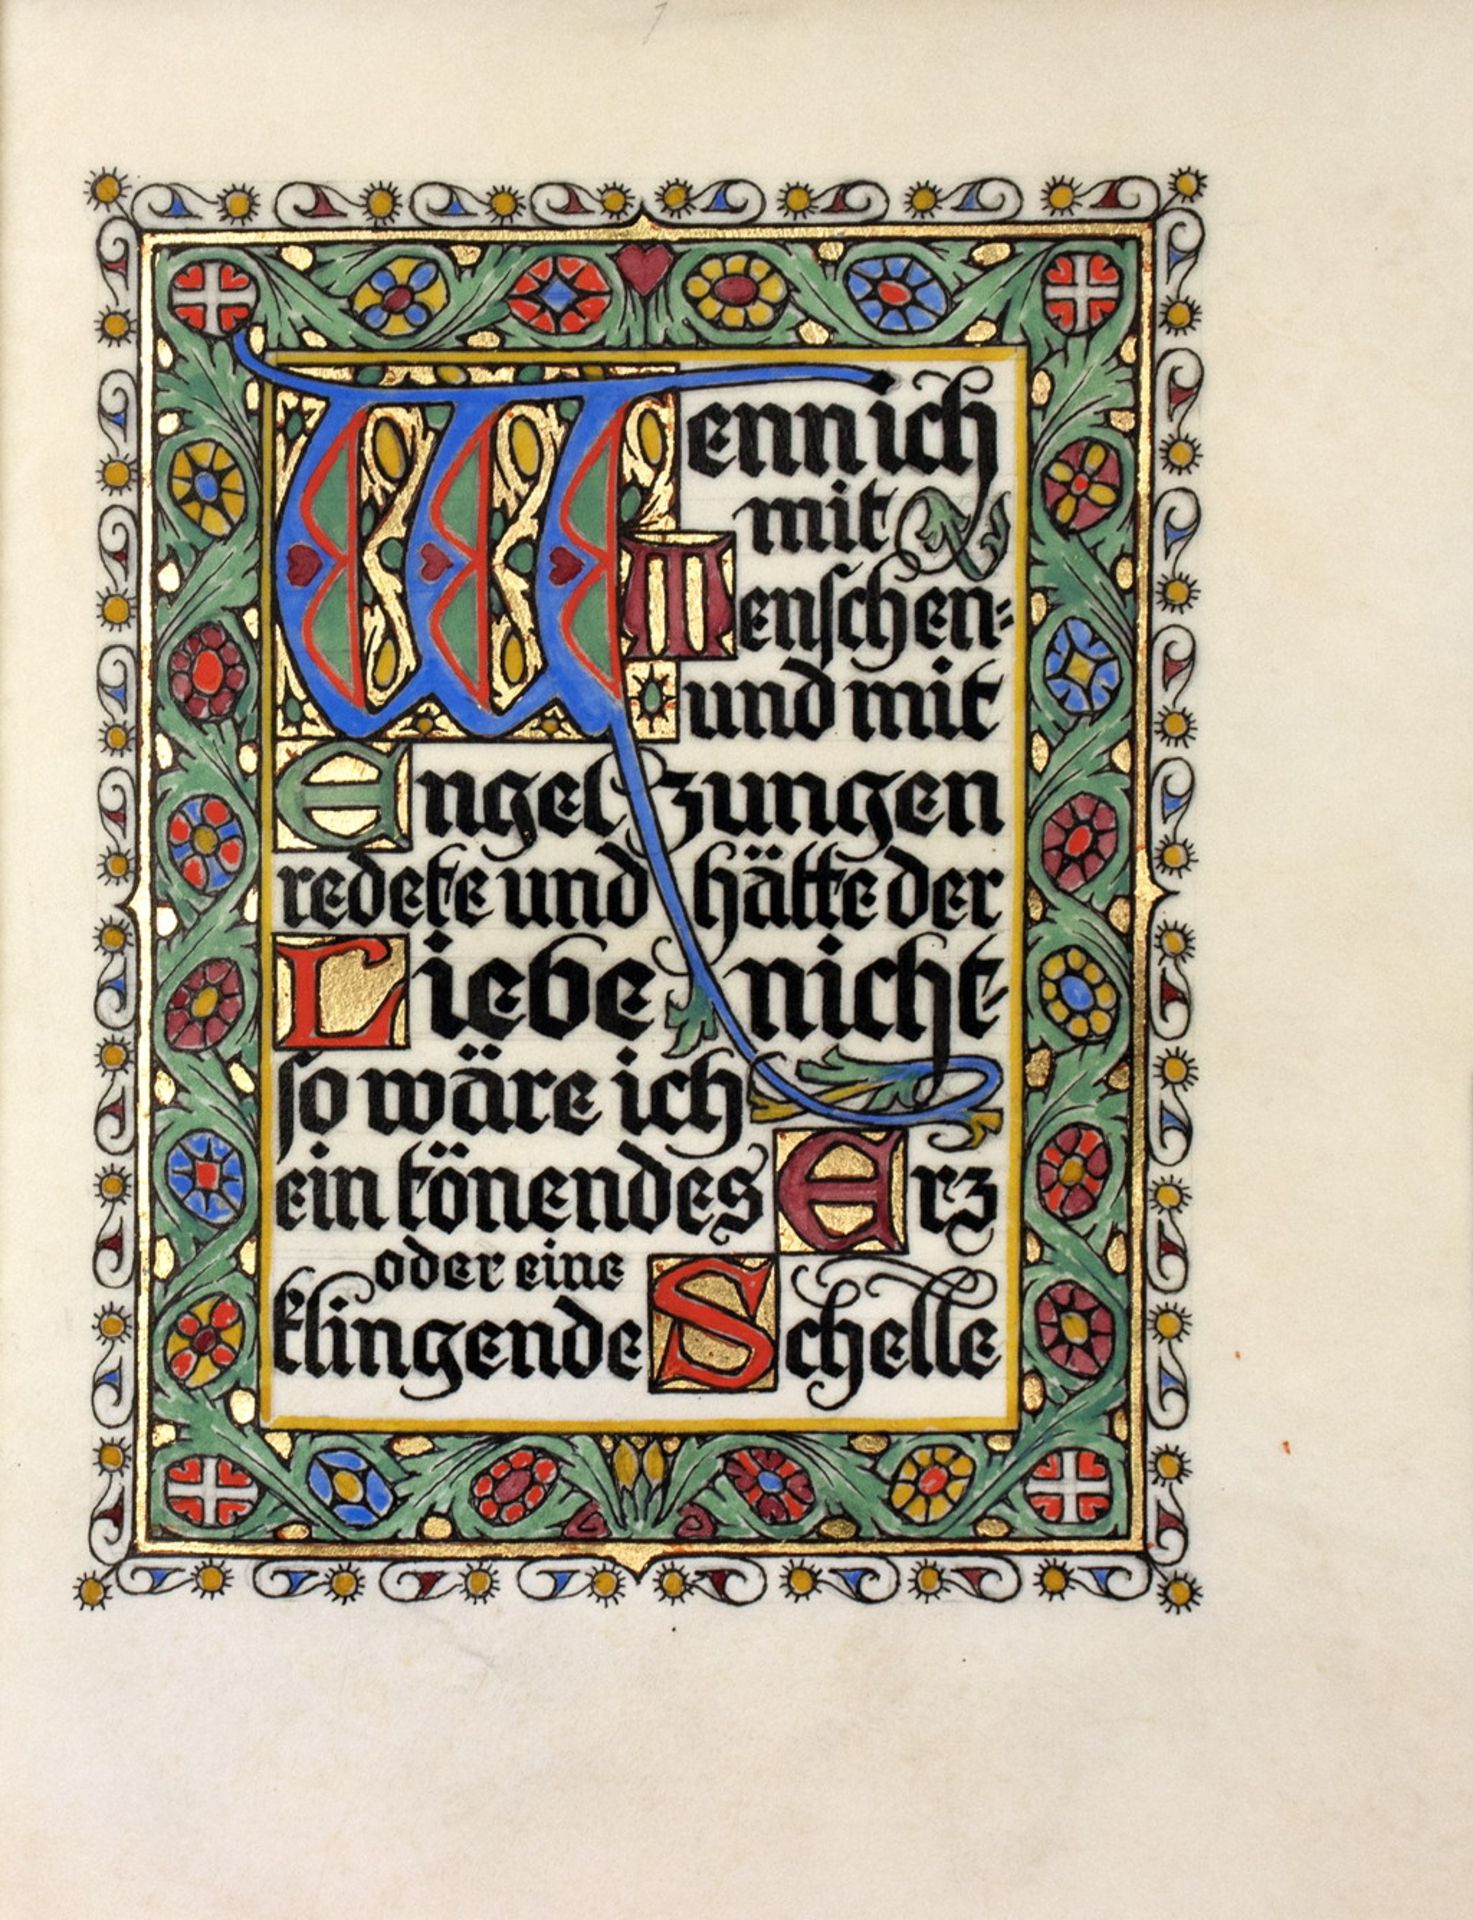 Wenn ich
mit
Menschen-
und mit
Engelzungen
redete und hätte der
Liebe nicht-
so wäre ich
ein tönendes Erz
oder eine
klingende Schelle